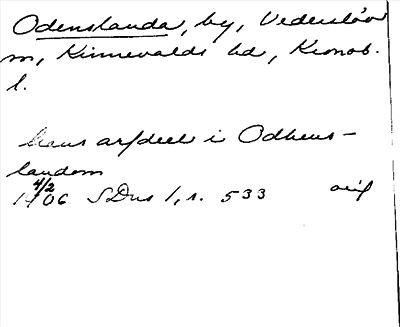 Odenslanda, by, Vederslöv
sn, Kinnevalds hd, Kronob.
l.
hans arfdeel i Odhens-
landom
14 4/2 06 SDns 1, s. 533 orig